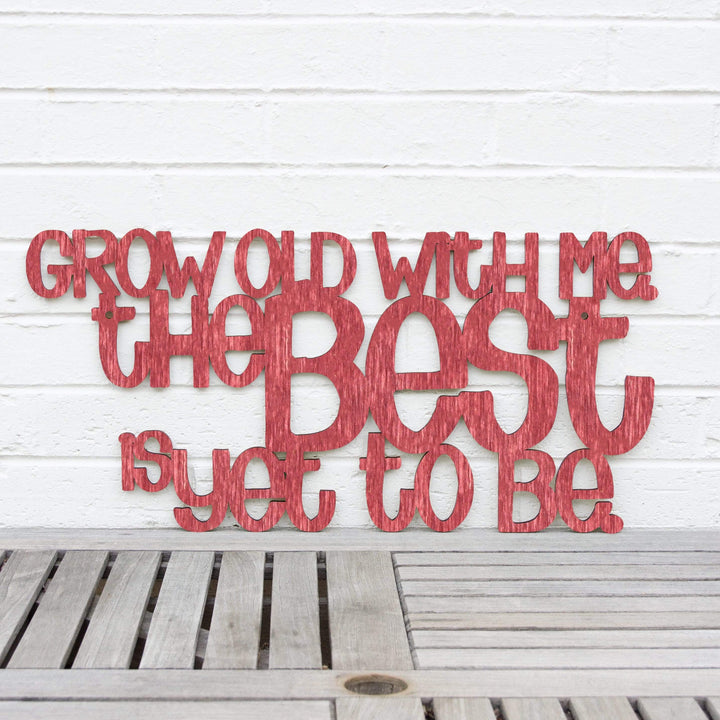 GROW OLD WITH ME.
tHe BeSt
iS yet to Be.